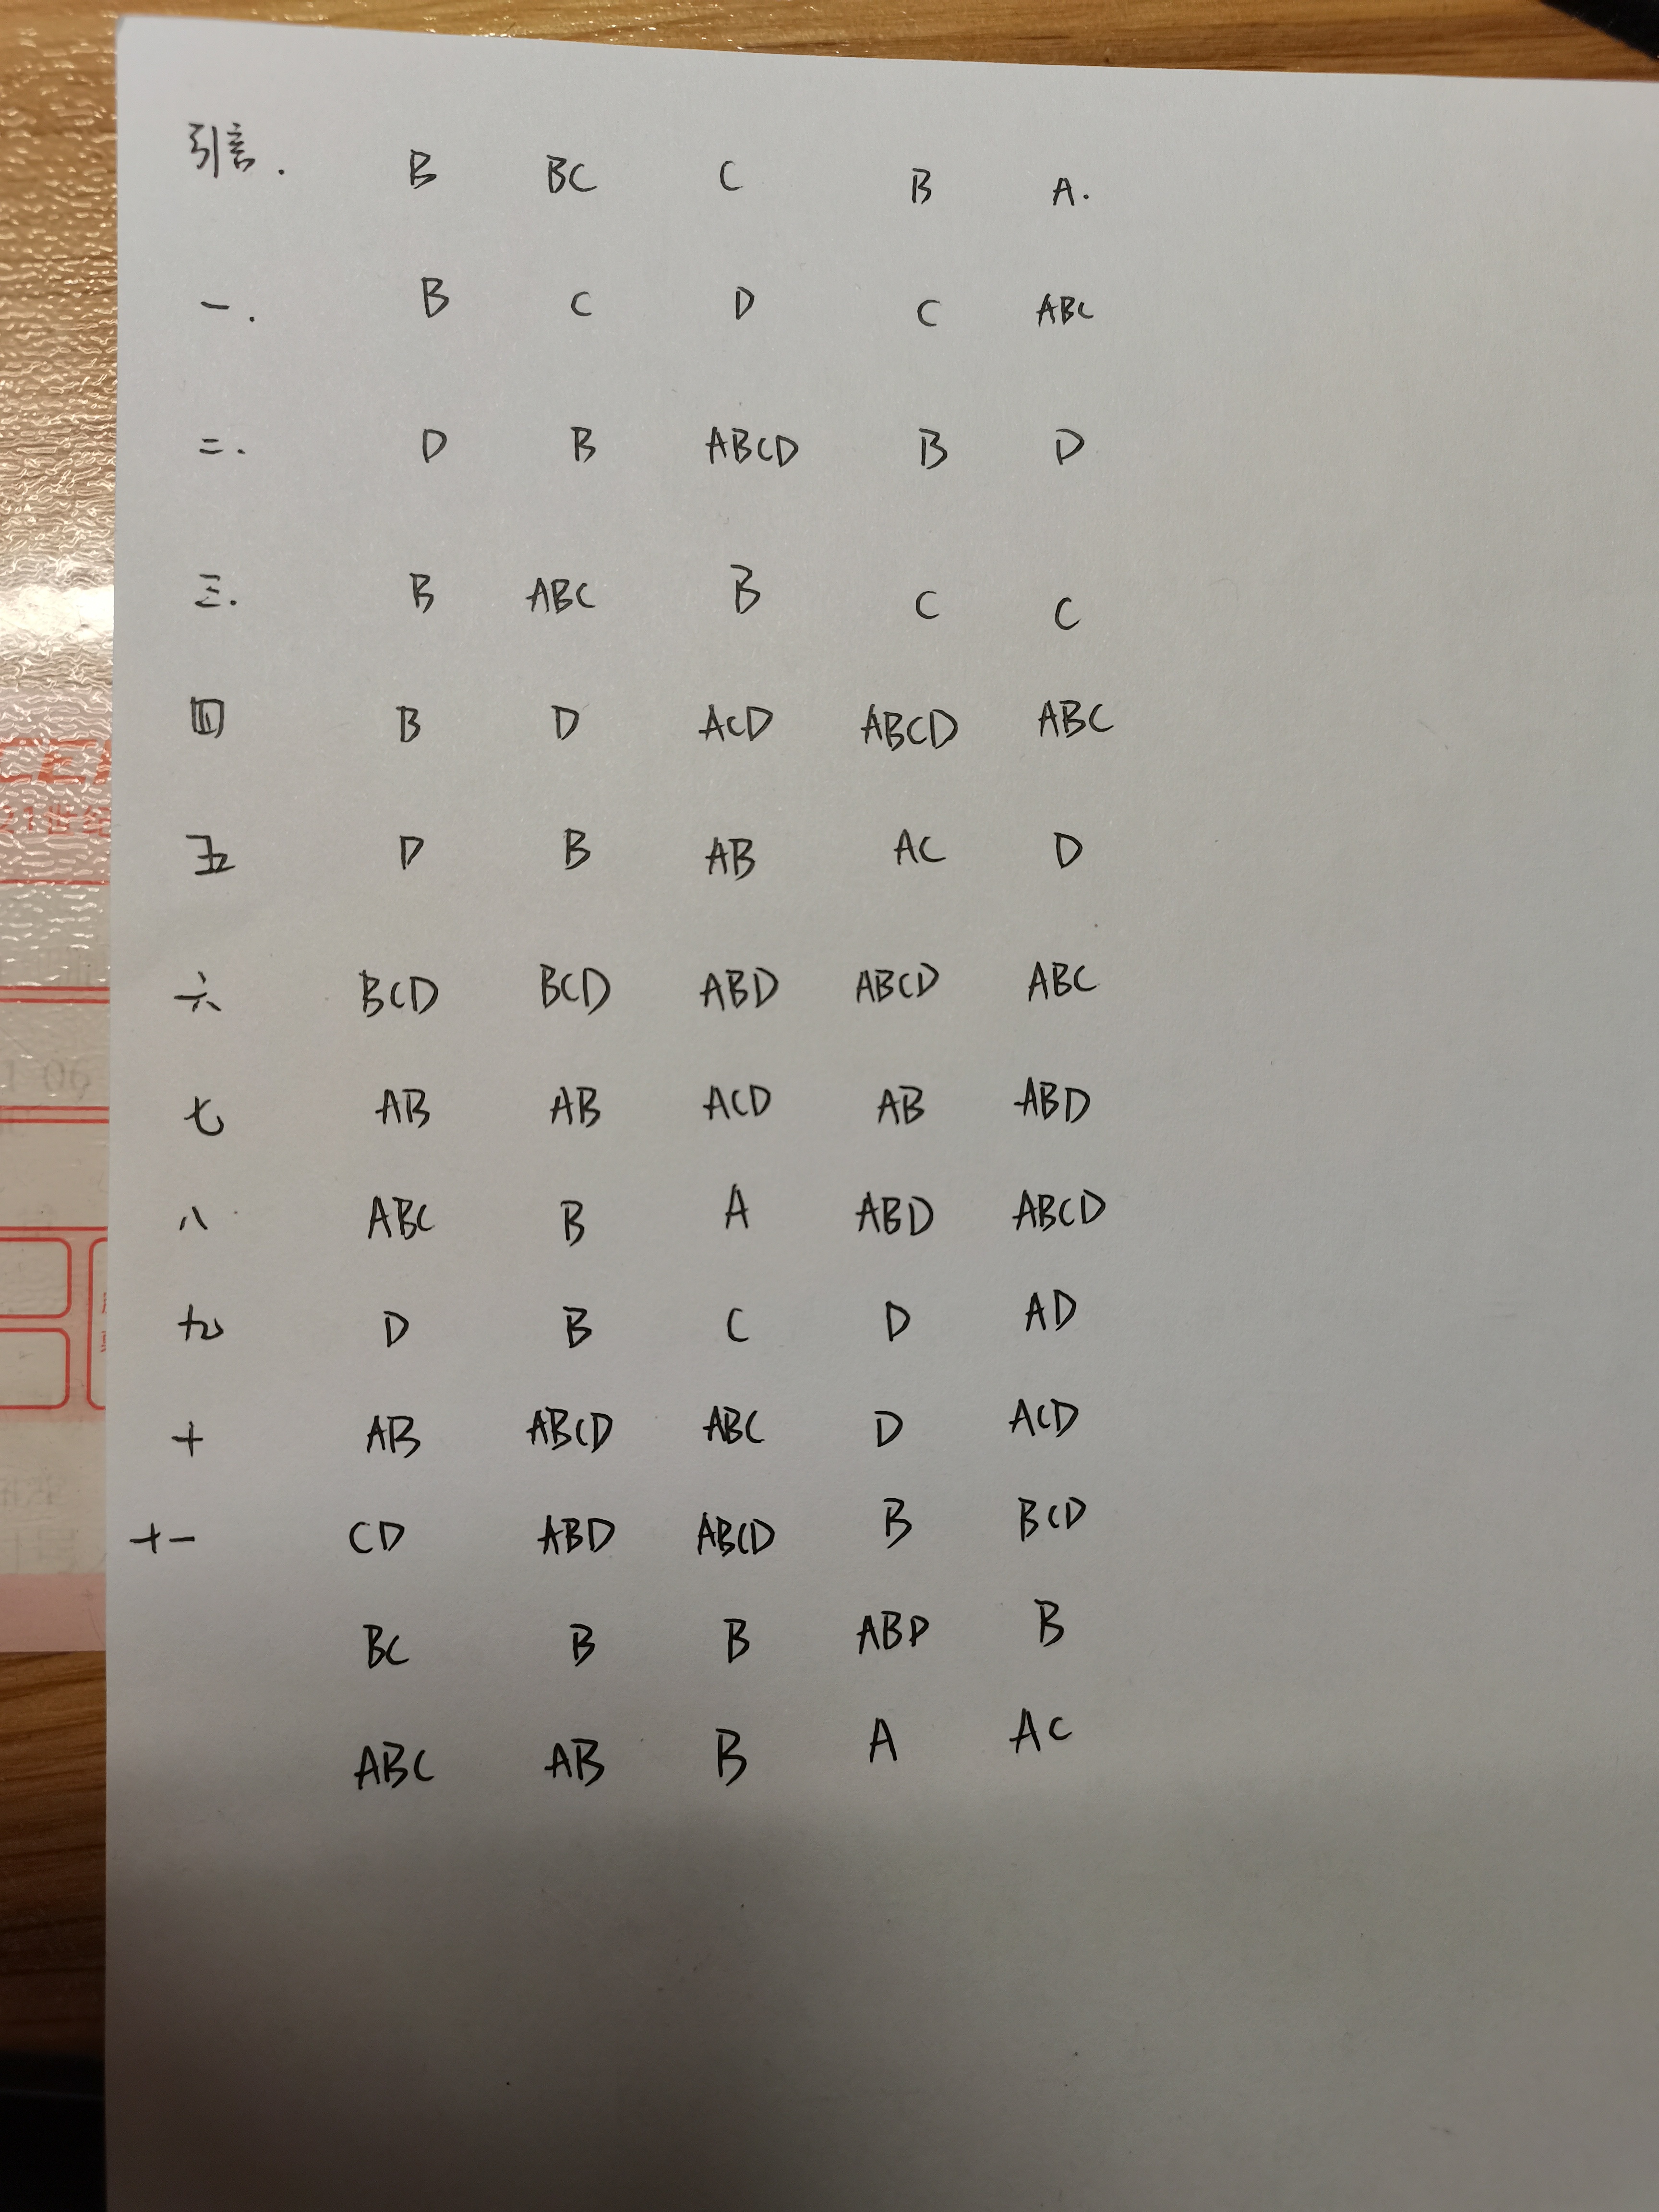 引言. B BC C B A.
一. B C D C ABC
二. D B ABCD B D
三. B ABC B C C
四 B D ACD ABCD ABC
五 D B AB AC D
六 BCD BCD ABD ABCD ABC
七 AB AB ACD AB ABD
八 ABC B A ABD ABCD
九 D B C D AD
十 AB ABCD ABC D ACD
十一 CD ABD ABCD B BCD
BC B B ABD B
ABC AB B A AC
1 06